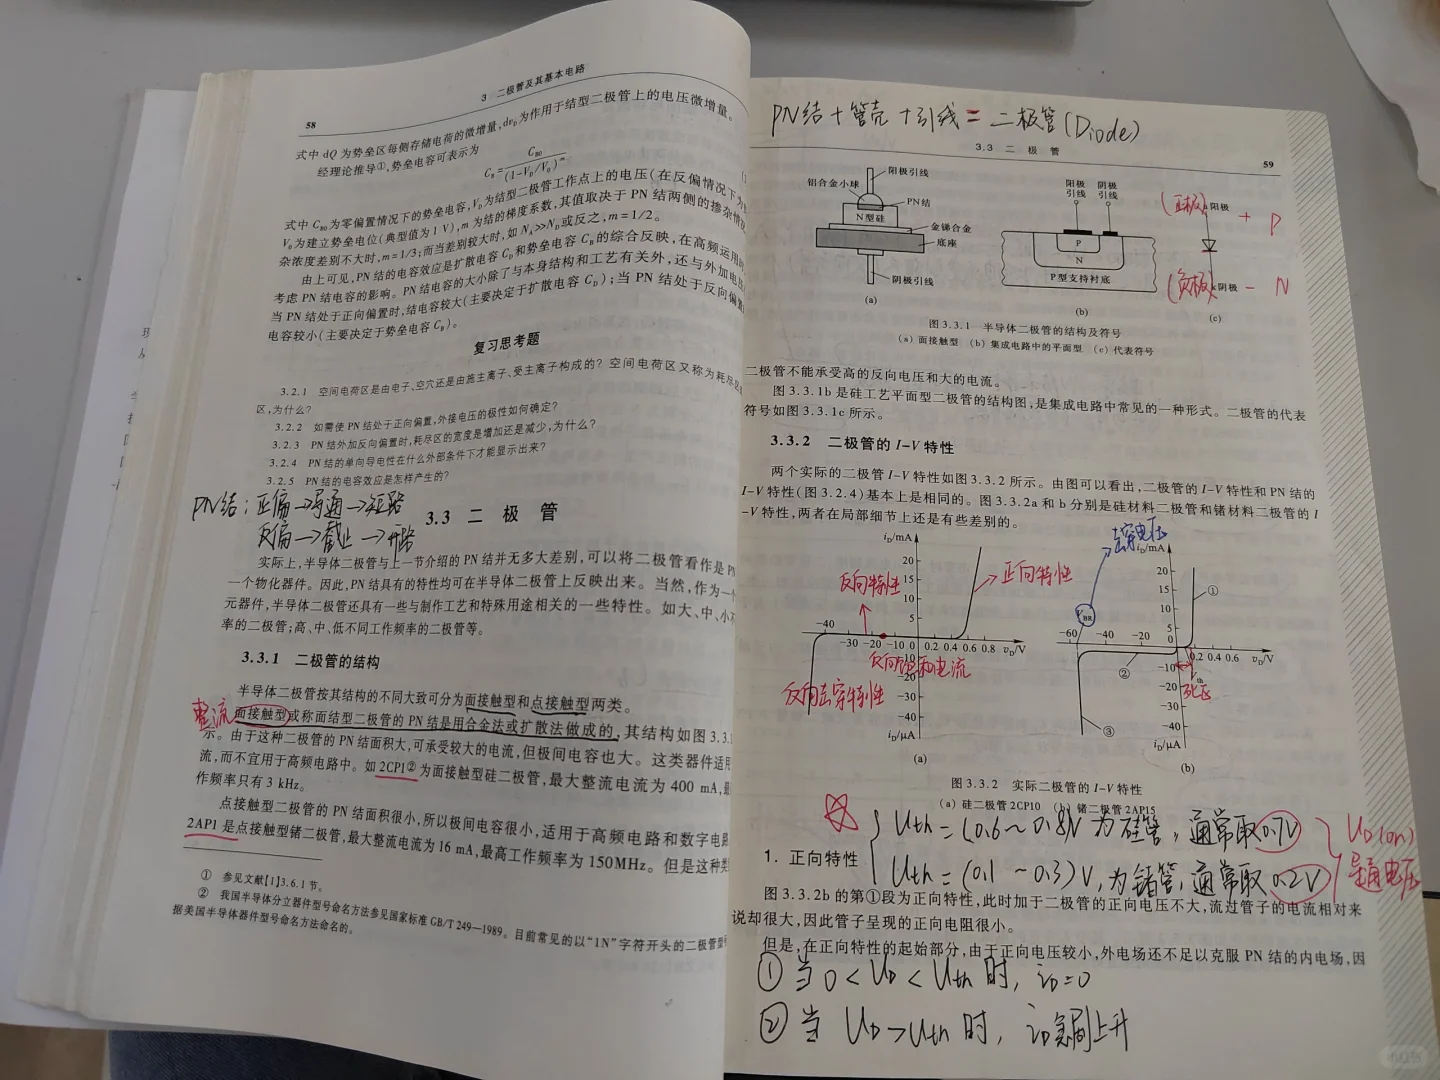 3 二极管及其基本电路
58
式中 dQ 为势垒区每侧存储电荷的微增量,dvD为作用于结型二极管上的电压微增量。
经理论推导①,势垒电容可表示为
CB = CB0 / (1-VD/V0)^m
式中 CB0为零偏置情况下的势垒电容,VD为结型二极管工作点上的电压(在反偏情况下为
V0为建立势垒电位(典型值为 1 V),m 为结的梯度系数,其值取决于 PN 结两侧的掺杂情
杂浓度差别不大时,m=1/3;而当差别较大时,如 NA>>ND或反之,m=1/2。
由上可见,PN 结的电容效应是扩散电容 CD和势垒电容 CB的综合反映,在高频运用时
考虑 PN 结电容的影响。PN 结电容的大小除了与本身结构和工艺有关外,还与外加电
当 PN 结处于正向偏置时,结电容较大(主要决定于扩散电容 CD);当 PN 结处于反向偏置
电容较小(主要决定于势垒电容 CB)。
复习思考题
3.2.1 空间电荷区是由电子、空穴还是由施主离子、受主离子构成的? 空间电荷区又称为耗尽
区,为什么?
3.2.2 如需使 PN 结处于正向偏置,外接电压的极性如何确定?
3.2.3 PN 结外加反向偏置时,耗尽区的宽度是增加还是减少,为什么?
3.2.4 PN 结的单向导电性在什么外部条件下才能显示出来?
3.2.5 PN 结的电容效应是怎样产生的?
PN结:正偏→导通→短路
反偏→截止→开路
3.3 二 极 管
实际上,半导体二极管与上一节介绍的 PN 结并无多大差别,可以将二极管看作是 PN
一个物化器件。因此,PN 结具有的特性均可在半导体二极管上反映出来。当然,作为一个
元器件,半导体二极管还具有一些与制作工艺和特殊用途相关的一些特性。如大、中、小
率的二极管;高、中、低不同工作频率的二极管等。
3.3.1 二极管的结构
半导体二极管按其结构的不同大致可分为面接触型和点接触型两类。
整流
面接触型或称面结型二极管的 PN 结是用合金法或扩散法做成的,其结构如图 3.3.
示。由于这种二极管的 PN 结面积大,可承受较大的电流,但极间电容也大。这类器件适用
流,而不宜用于高频电路中。如 2CP1②为面接触型硅二极管,最大整流电流为 400 mA,
作频率只有 3 kHz。
点接触型二极管的 PN 结面积很小,所以极间电容很小,适用于高频电路和数字电路
2AP1 是点接触型锗二极管,最大整流电流为 16 mA,最高工作频率为 150MHz。但是这种类
① 参见文献[1]3.6.1 节。
② 我国半导体分立器件型号命名方法参见国家标准 GB/T 249—1989。目前常见的以“1N”字符开头的二极管型
据美国半导体器件型号命名方法命名的。
PN结+管壳+引线=二极管(Diode)
3.3 二 极 管
59
阳极引线
铝合金小球
PN结
N 型硅
金锑合金
底座
阴极引线
(a)
阳极引线
阴极引线
P
N
P型支持衬底
(b)
(正极) 阳极 + P
(负极) 阴极 - N
(c)
图 3.3.1 半导体二极管的结构及符号
(a) 面接触型 (b) 集成电路中的平面型 (c) 代表符号
二极管不能承受高的反向电压和大的电流。
图 3.3.1b 是硅工艺平面型二极管的结构图,是集成电路中常见的一种形式。二极管的代表
符号如图 3.3.1c 所示。
3.3.2 二极管的 I-V 特性
两个实际的二极管 I-V 特性如图 3.3.2 所示。由图可以看出,二极管的 I-V 特性和 PN 结的
I-V 特性(图 3.2.4)基本上是相同的。图 3.3.2a 和 b 分别是硅材料二极管和锗材料二极管的 I
-V 特性,两者在局部细节上还是有些差别的。
iD/mA
20
15
10
5
反向特性
正向特性
-40
-30 -20 -10 0 0.2 0.4 0.6 0.8 vD/V
-10
反向饱和电流
-20
反向击穿特性
-30
-40
iD/μA
(a)
击穿电压
iD/mA
20
15
10
5
0
①
VBR
-60 -40 -20
0.2 0.4 0.6 vD/V
-10
②
Vth
死区
-20
-30
③
-40
iD/μA
(b)
图 3.3.2 实际二极管的 I-V 特性
(a) 硅二极管 2CP10 (b) 锗二极管 2AP15
Uth=(0.6~0.8)V 为硅管,通常取0.7V
1. 正向特性
Uth=(0.1~0.3)V,为锗管,通常取0.2V
UD(on)
导通电压
图 3.3.2b 的第①段为正向特性,此时加于二极管的正向电压不大,流过管子的电流相对来
说却很大,因此管子呈现的正向电阻很小。
但是,在正向特性的起始部分,由于正向电压较小,外电场还不足以克服 PN 结的内电场,因
① 当 0<UD<Uth 时, iD=0
② 当 UD>Uth 时, iD急剧上升
小红书